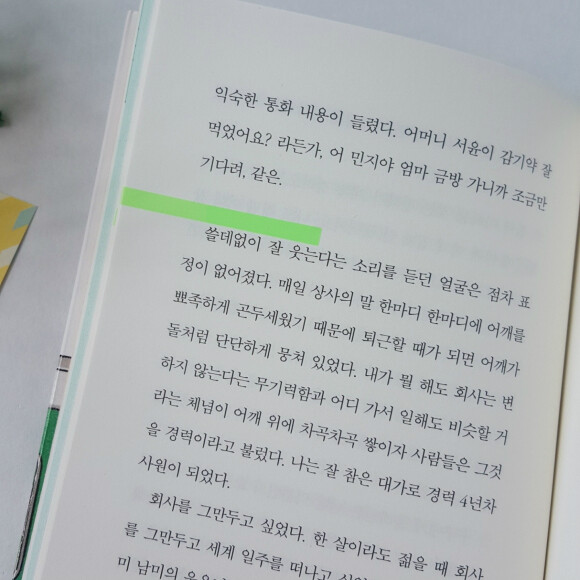 익숙한 통화 내용이 들렸다. 어머니 서윤이 감기약 잘
먹었어요? 라든가, 어 민지야 엄마 금방 가니까 조금만
기다려, 같은.
쓸데없이 잘 웃는다는 소리를 듣던 얼굴은 점차 표
정이 없어졌다. 매일 상사의 말 한마디 한마디에 어깨를
뾰족하게 곤두세웠기 때문에 퇴근할 때가 되면 어깨가
돌처럼 단단하게 뭉쳐 있었다. 내가 뭘 해도 회사는 변
하지 않는다는 무기력함과 어디 가서 일해도 비슷할 거
라는 체념이 어깨 위에 차곡차곡 쌓이자 사람들은 그것
을 경력이라고 불렀다. 나는 잘 참은 대가로 경력 4년차
사원이 되었다.
회사를 그만두고 싶었다. 한 살이라도 젊을 때 회사
를 그만두고 세계 일주를 떠나고
미 남미의